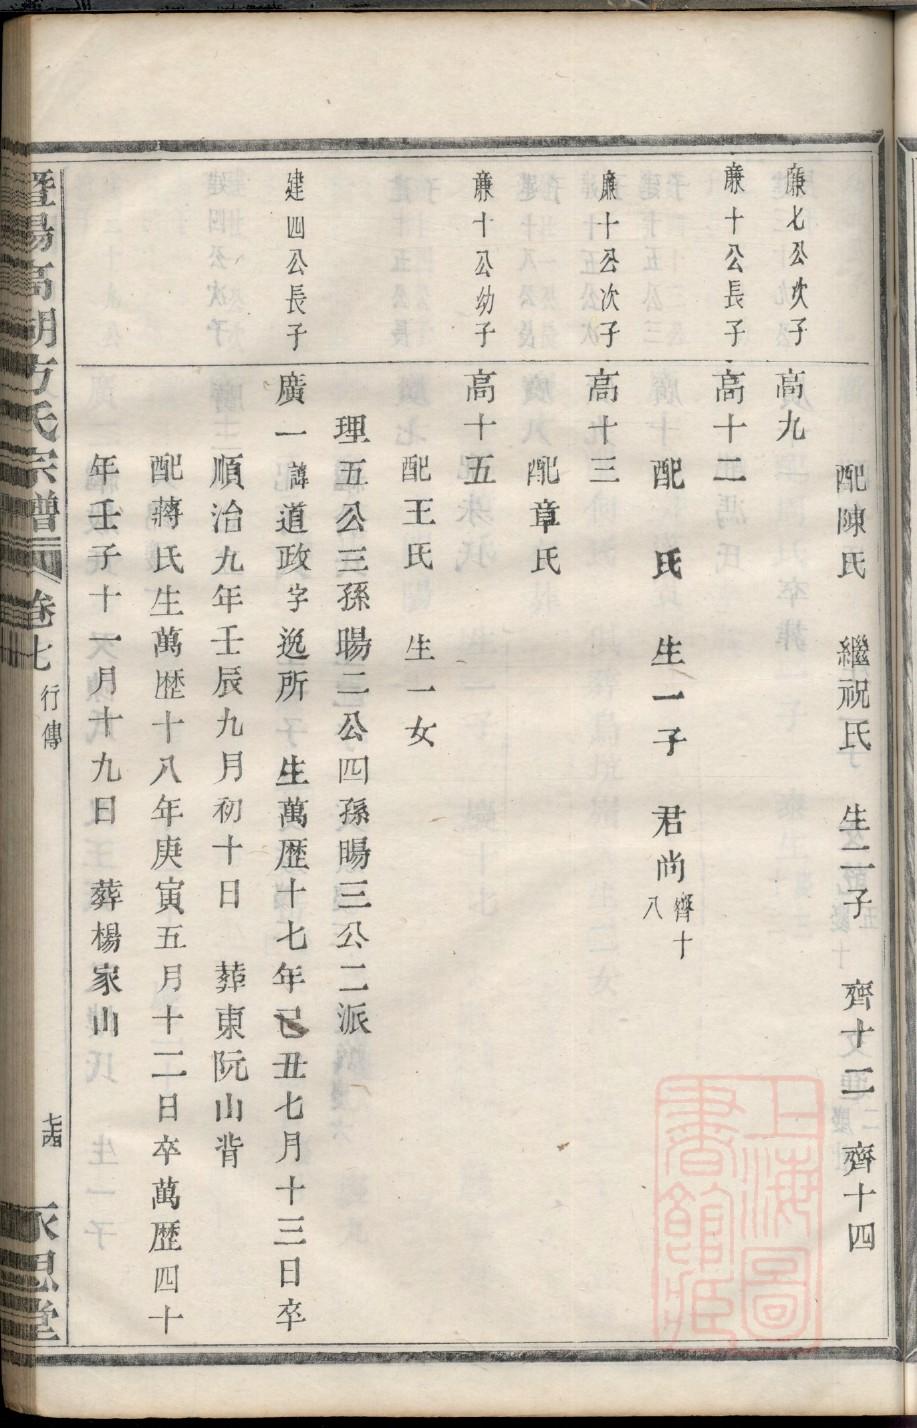 配陳氏 繼祝氏 生二子 齊十二 齊十四
廉七公次子 高九
廉十公長子 高十二
配 氏 生一子 君尚齊十八
廉十公次子 高十三
配章氏
廉十公幼子 高十五
配王氏 生一女
理五公三孫暘二公四孫暘三公二派
建四公長子 廣一諱道政字逸所 生萬歷十七年己丑七月十三日卒
順治九年壬辰九月初十日 葬東阮山背
配蔣氏生萬歷十八年庚寅五月十二日卒萬歷四十
年壬子十一月十九日 葬楊家山
暨陽高湖方氏宗譜 卷七 行傳 永思堂
上海圖書館藏